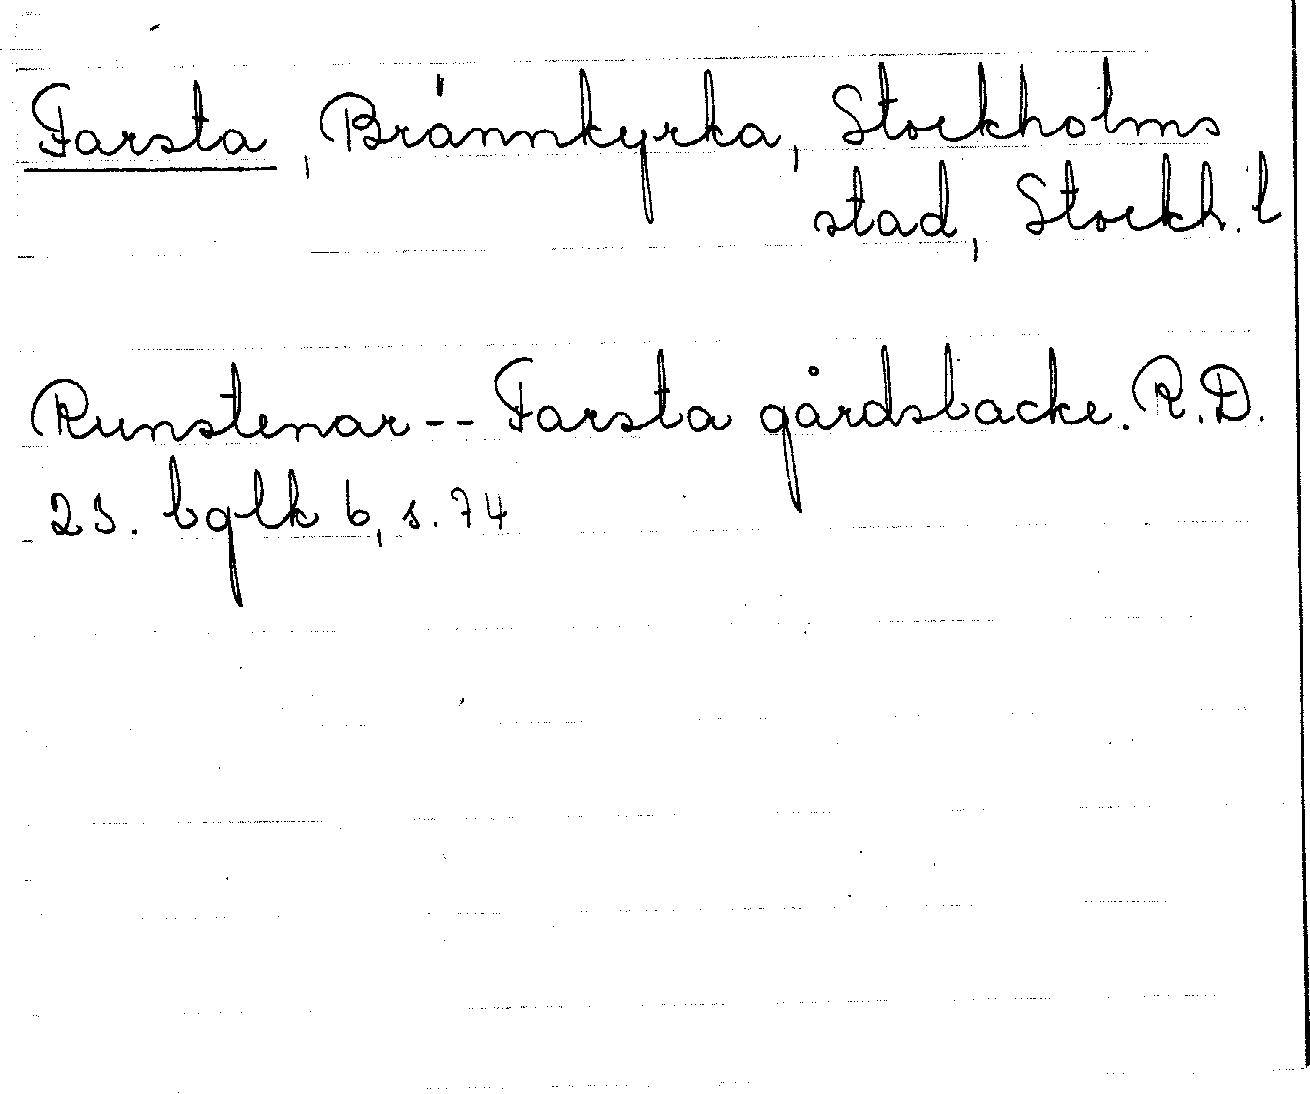 Farsta, Brännkyrka, Stockholms
stad, Stockh. l
Runstenar -- Farsta gårdsbacke. R.D.
23. bqlk 6, s. 74